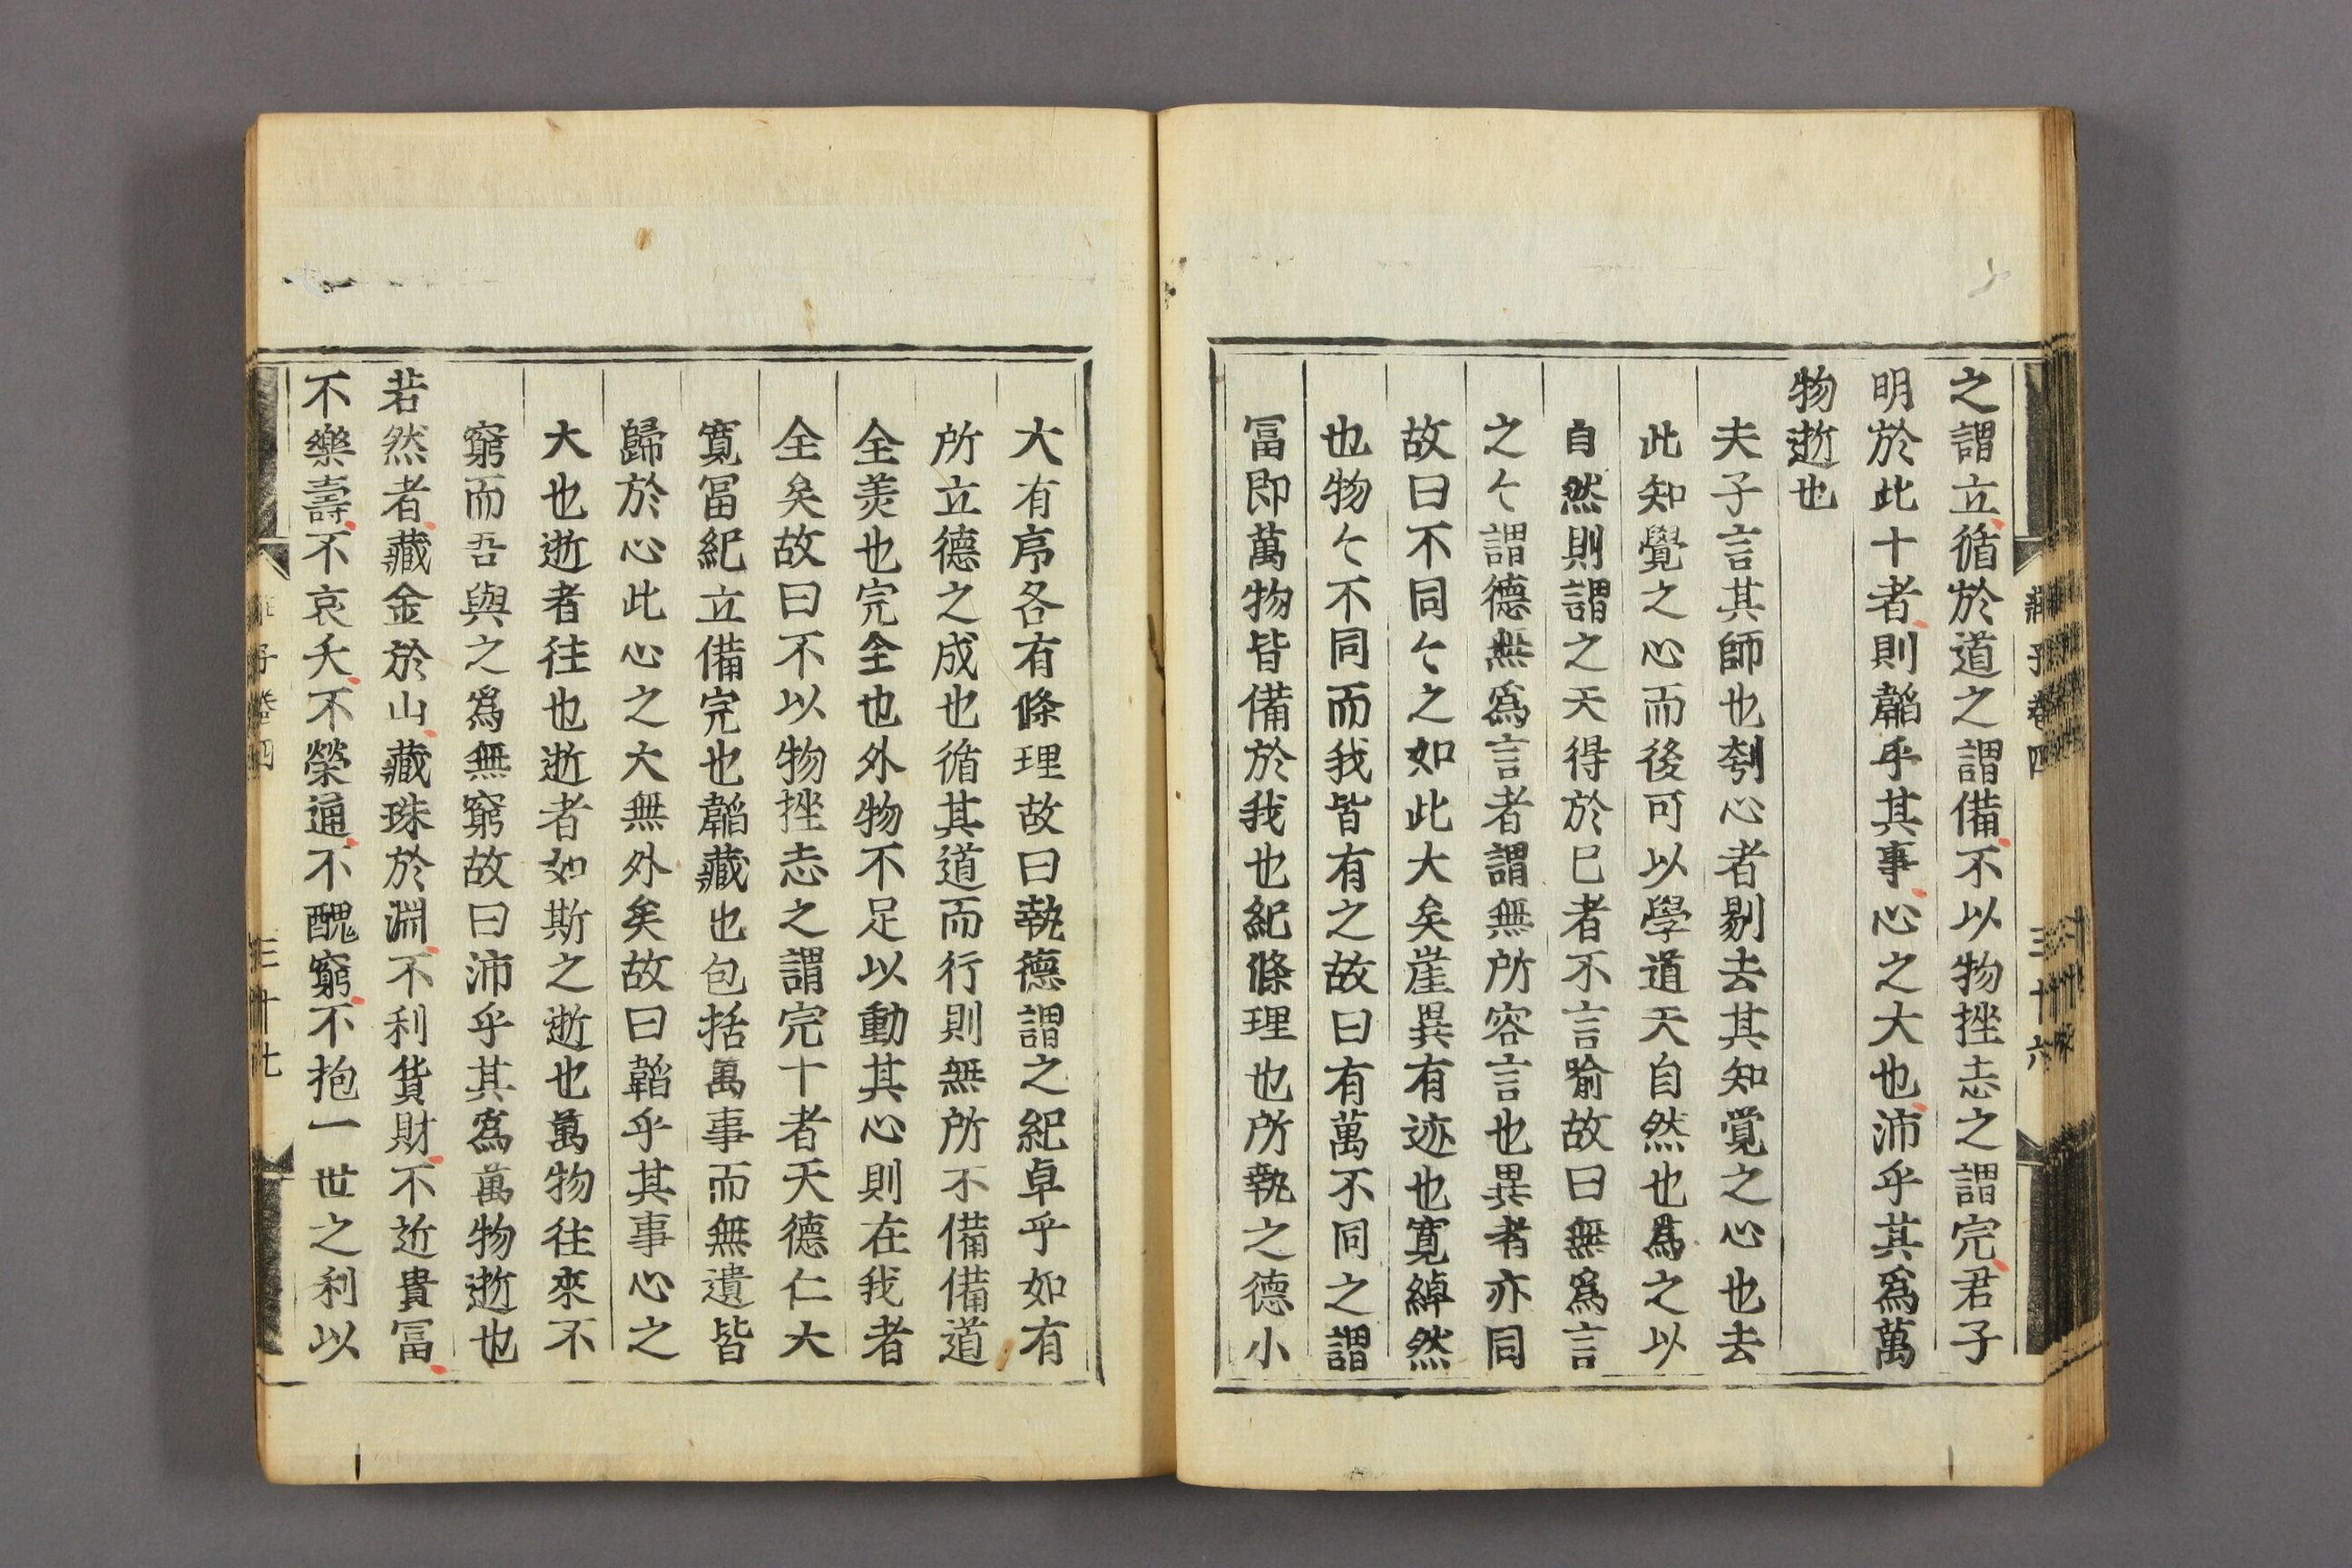 之謂立循於道之謂備不以物挫志之謂完君子
明於此十者則韜乎其事心之大也沛乎其爲萬
物逝也
夫子言其師也刳心者剔去其知覺之心也去
此知覺之心而後可以學道天自然也爲之以
自然則謂之天得於已者不言喻故曰無爲言
之〻謂德無爲言者謂無所容言也異者亦同
故曰不同〻之如此大矣崖異有迹也寛綽然
也物〻不同而我皆有之故曰有萬不同之謂
冨即萬物皆備於我也紀條理也所執之德小
三十六
大有序各有條理故曰執德謂之紀卓乎如有
所立德之成也循其道而行則無所不備備道
全美也完全也外物不足以動其心則在我者
全矣故曰不以物挫志之謂完十者天德仁大
寛冨紀立備完也韜藏也包括萬事而無遺皆
歸於心此心之大無外矣故曰韜乎其事心之
大也逝者往也逝者如斯之逝也萬物往來不
窮而吾與之爲無窮故曰沛乎其爲萬物逝也
若然者藏金於山藏珠於淵不利貨財不近貴冨
不樂壽不哀夭不榮通不醜窮不抱一世之利以
子卷四
三十七